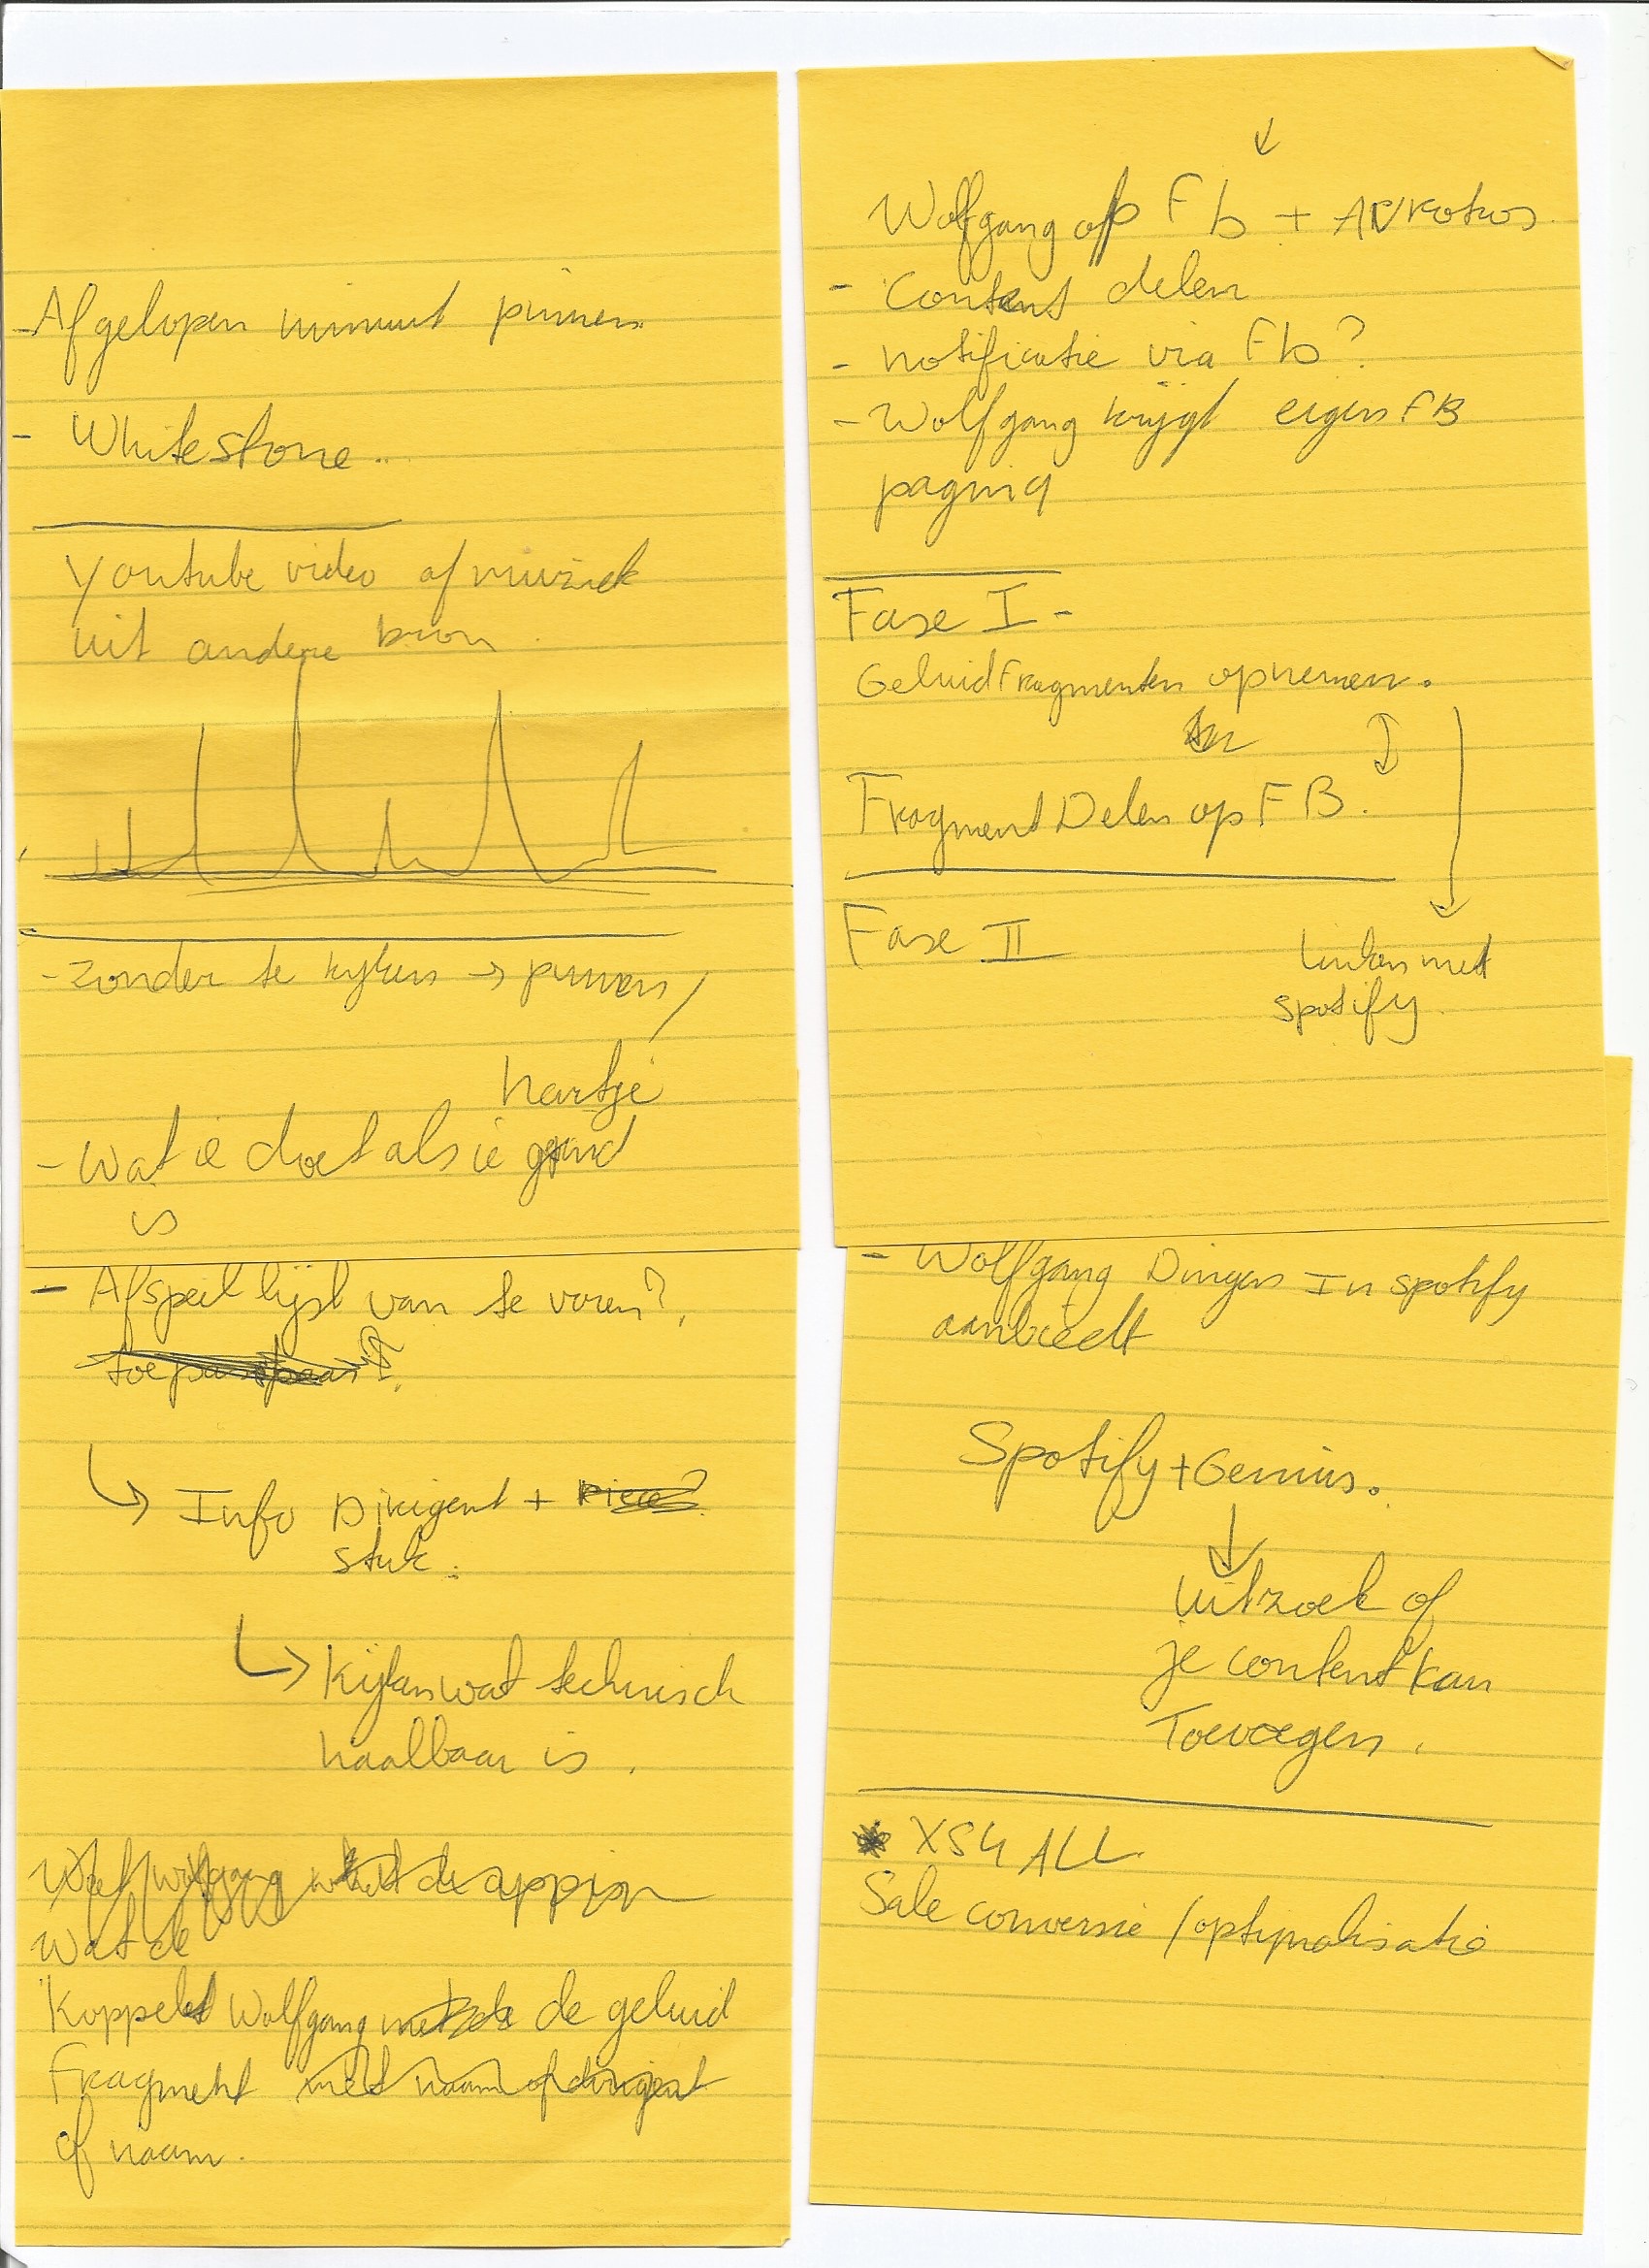 - Afgelopen minuut pinnen.
- Whitestone..
Youtube video of muziek
uit andere bron.
- zonder te kijken → pinnen /
hartje
- Wat ie doet als ie
is
- Afspeellijst van te voren?,
↳ Info Dirigent +
stuk.
↳ Kijken wat technisch
haalbaar is.
wat de
Koppelt Wolfgang de geluid
Fragment
of naam.
↓
Wolfgang op Fb +
- Content delen
- notificatie via Fb?
- Wolfgang krijgt eigen FB
pagina
Fase I -
Geluid Fragmenten opnemen.
Fragment Delen op FB.
Fase II
linken met
spotify.
- Wolfgang Dingen In spotify
aanbiedt
Spotify + Genius.
↓
uitzoek of
je content kan
Toevoegen.
* XS4ALL
Sale conversie / optimalisatie